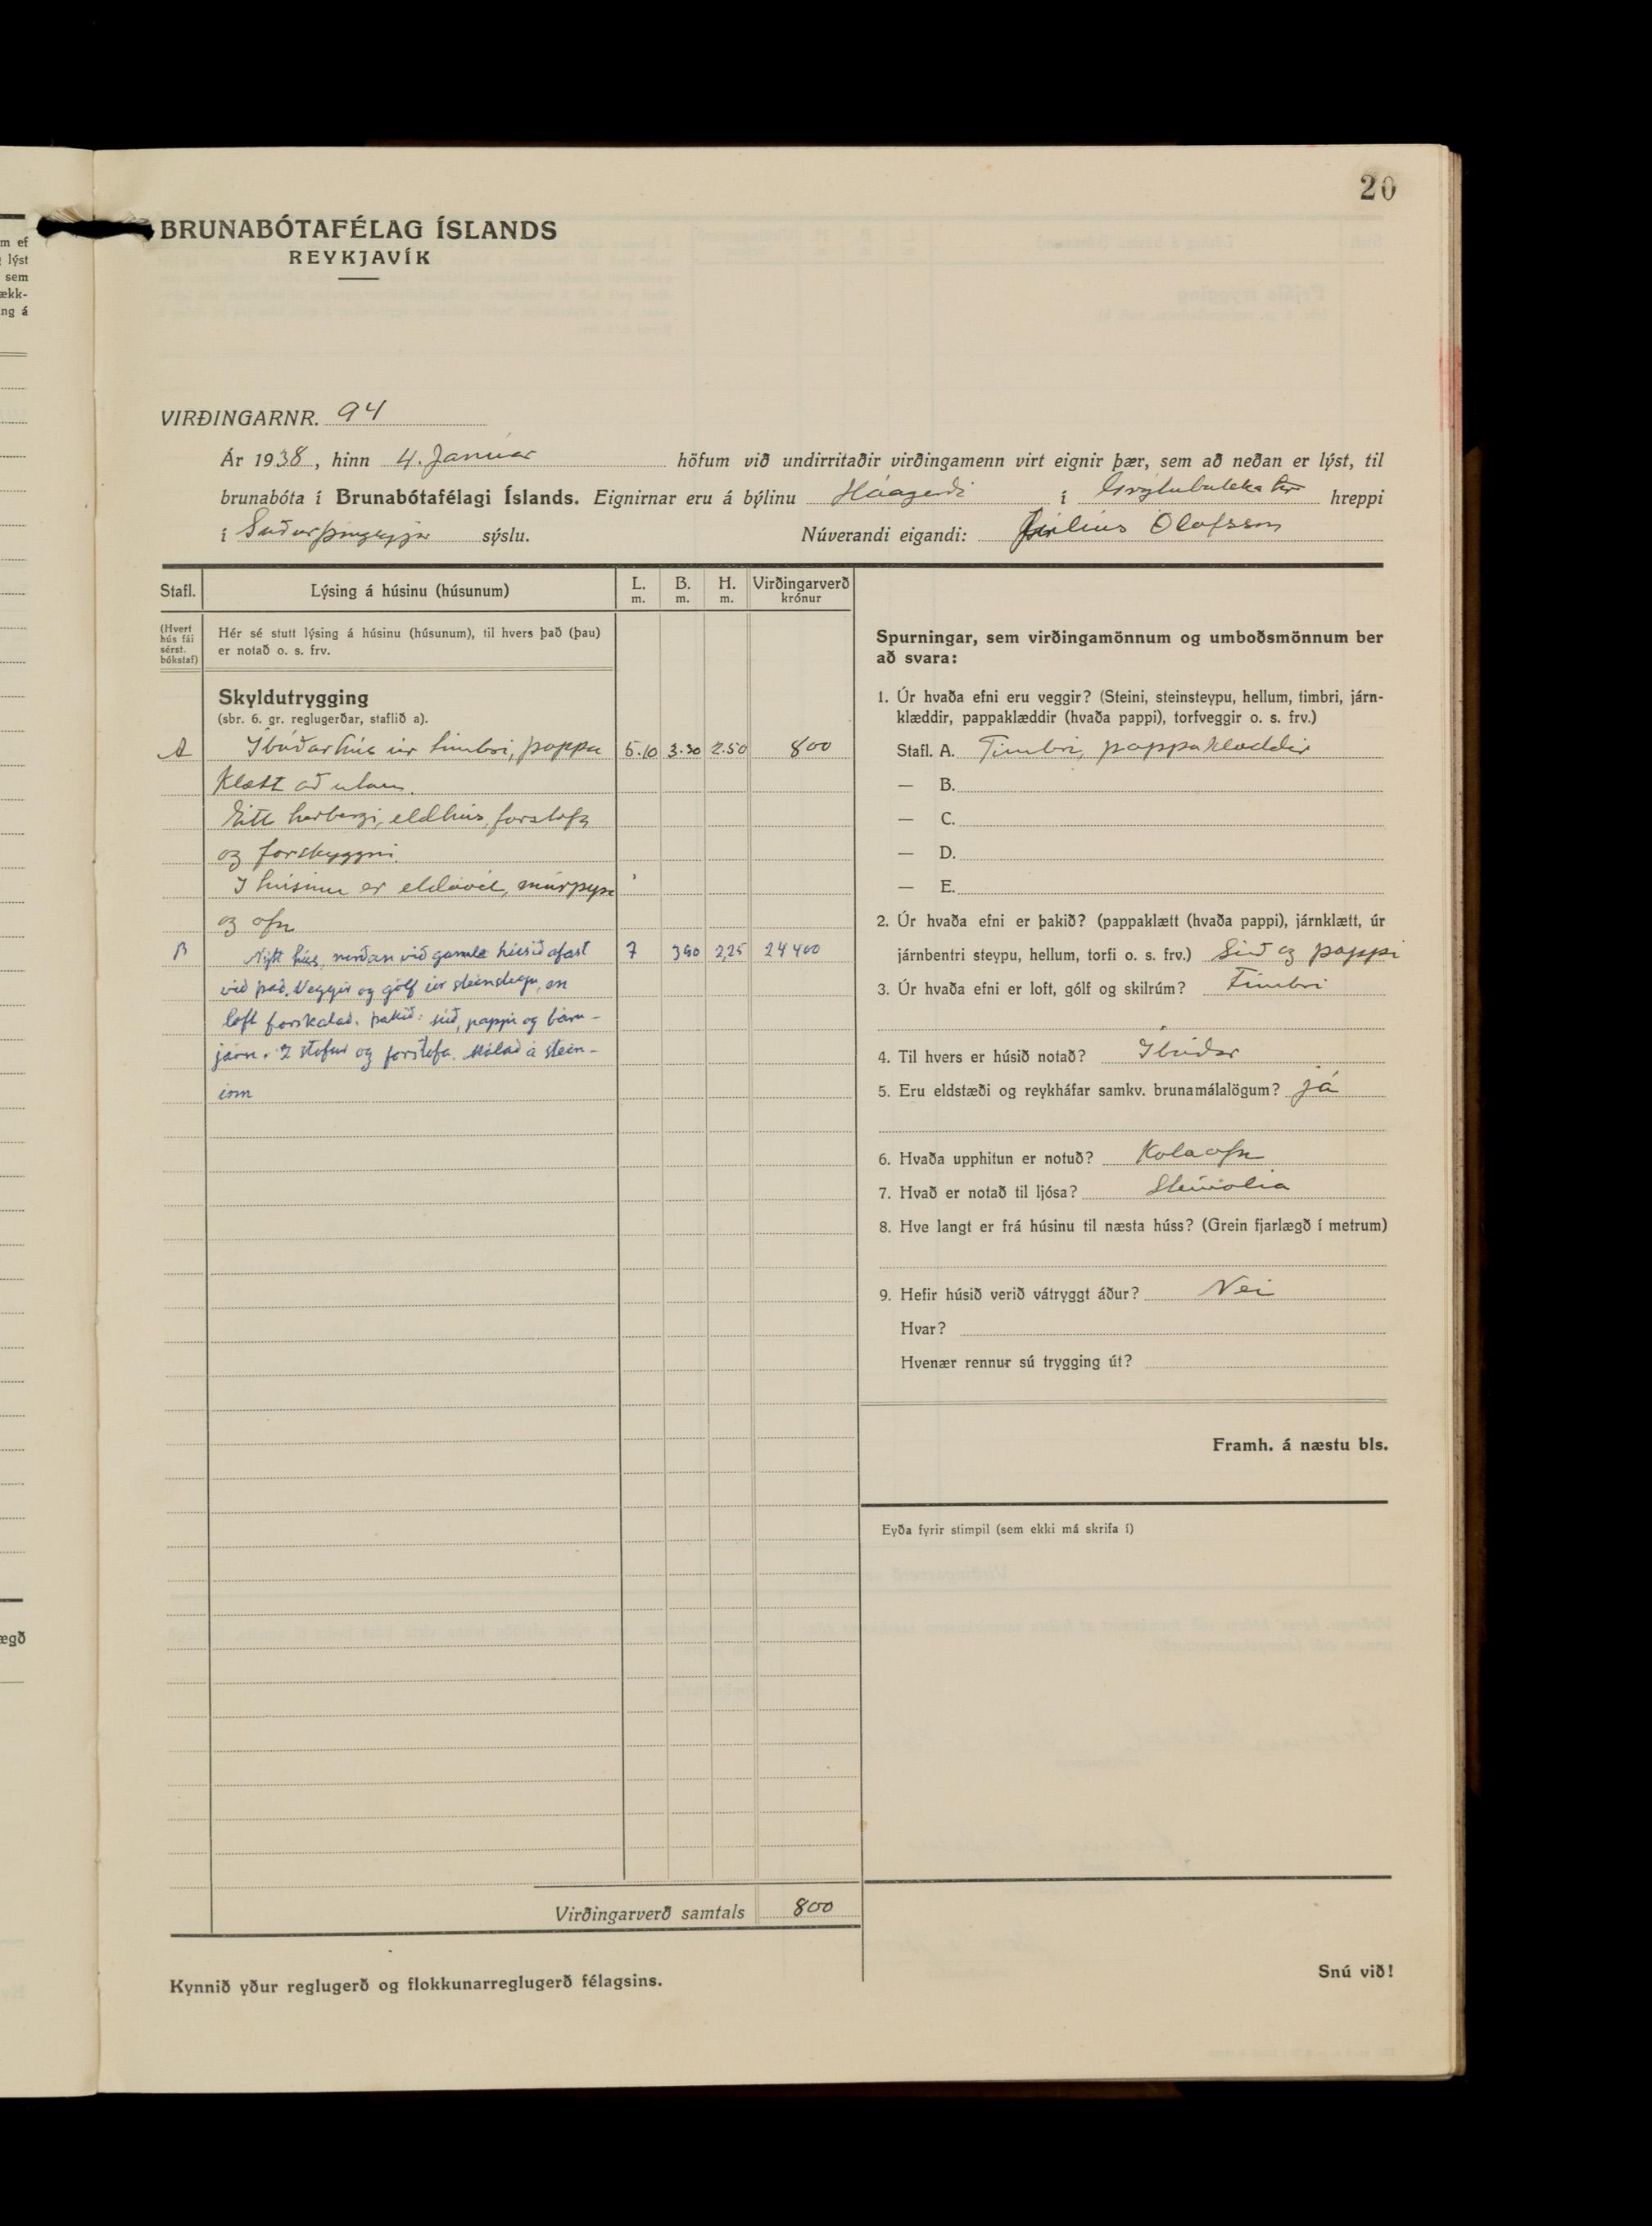 20
BRUNABÓTAFÉLAG ÍSLANDS
REYKJAVÍK
VIRÐINGARNR. 94
Ár 1938, hinn 4. Janúar höfum við undirritaðir virðingamenn virt eignir þær, sem að neðan er lýst, til
brunabóta í Brunabótafélagi Íslands. Eignirnar eru á býlinu Háagerði í Grýtubakka hreppi
í Suðurþingeyjar sýslu. Núverandi eigandi: Júlíus Ólafsson
Stafl. Lýsing á húsinu (húsunum) L. m. B. m. H. m. Virðingarverð krónur
(Hvert hús fái sérst. bókstaf)
Hér sé stutt lýsing á húsinu (húsunum), til hvers það (þau)
er notað o. s. frv.
Skyldutrygging
(sbr. 6. gr. reglugerðar, staflið a).
A Íbúðarhús úr timbri, pappa 5.10 3.30 2.50 800
klætt að utan.
Eitt herbergi, eldhús, forstofa
og forskyggni.
Í húsinu er eldavél, múrpípa
og ofn
B Nýtt hús, norðan við gamla húsið áfast 7 390 2,25 24400
við það. Veggir og gólf úr steinsteypu, en
loft forskalað. Þakið: súð, pappi og báru-
járn. 2 stofur og forstofa. Málað á stein-
inn
Virðingarverð samtals 800
Kynnið yður reglugerð og flokkunarreglugerð félagsins.
Spurningar, sem virðingamönnum og umboðsmönnum ber
að svara:
1. Úr hvaða efni eru veggir? (Steini, steinsteypu, hellum, timbri, járn-
klæddir, pappaklæddir (hvaða pappi), torfveggir o. s. frv.)
Stafl. A. Timbri, pappaklæddir
— B.
— C.
— D.
— E.
2. Úr hvaða efni er þakið? (pappaklætt (hvaða pappi), járnklætt, úr
járnbentri steypu, hellum, torfi o. s. frv.) Súð og pappi
3. Úr hvaða efni er loft, gólf og skilrúm? Timbri
4. Til hvers er húsið notað? Íbúðar
5. Eru eldstæði og reykháfar samkv. brunamálalögum? já
6. Hvaða upphitun er notuð? Kolaofn
7. Hvað er notað til ljósa? Steinolía
8. Hve langt er frá húsinu til næsta húss? (Grein fjarlægð í metrum)
9. Hefir húsið verið vátryggt áður? Nei
Hvar?
Hvenær rennur sú trygging út?
Framh. á næstu bls.
Eyða fyrir stimpil (sem ekki má skrifa í)
Snú við!